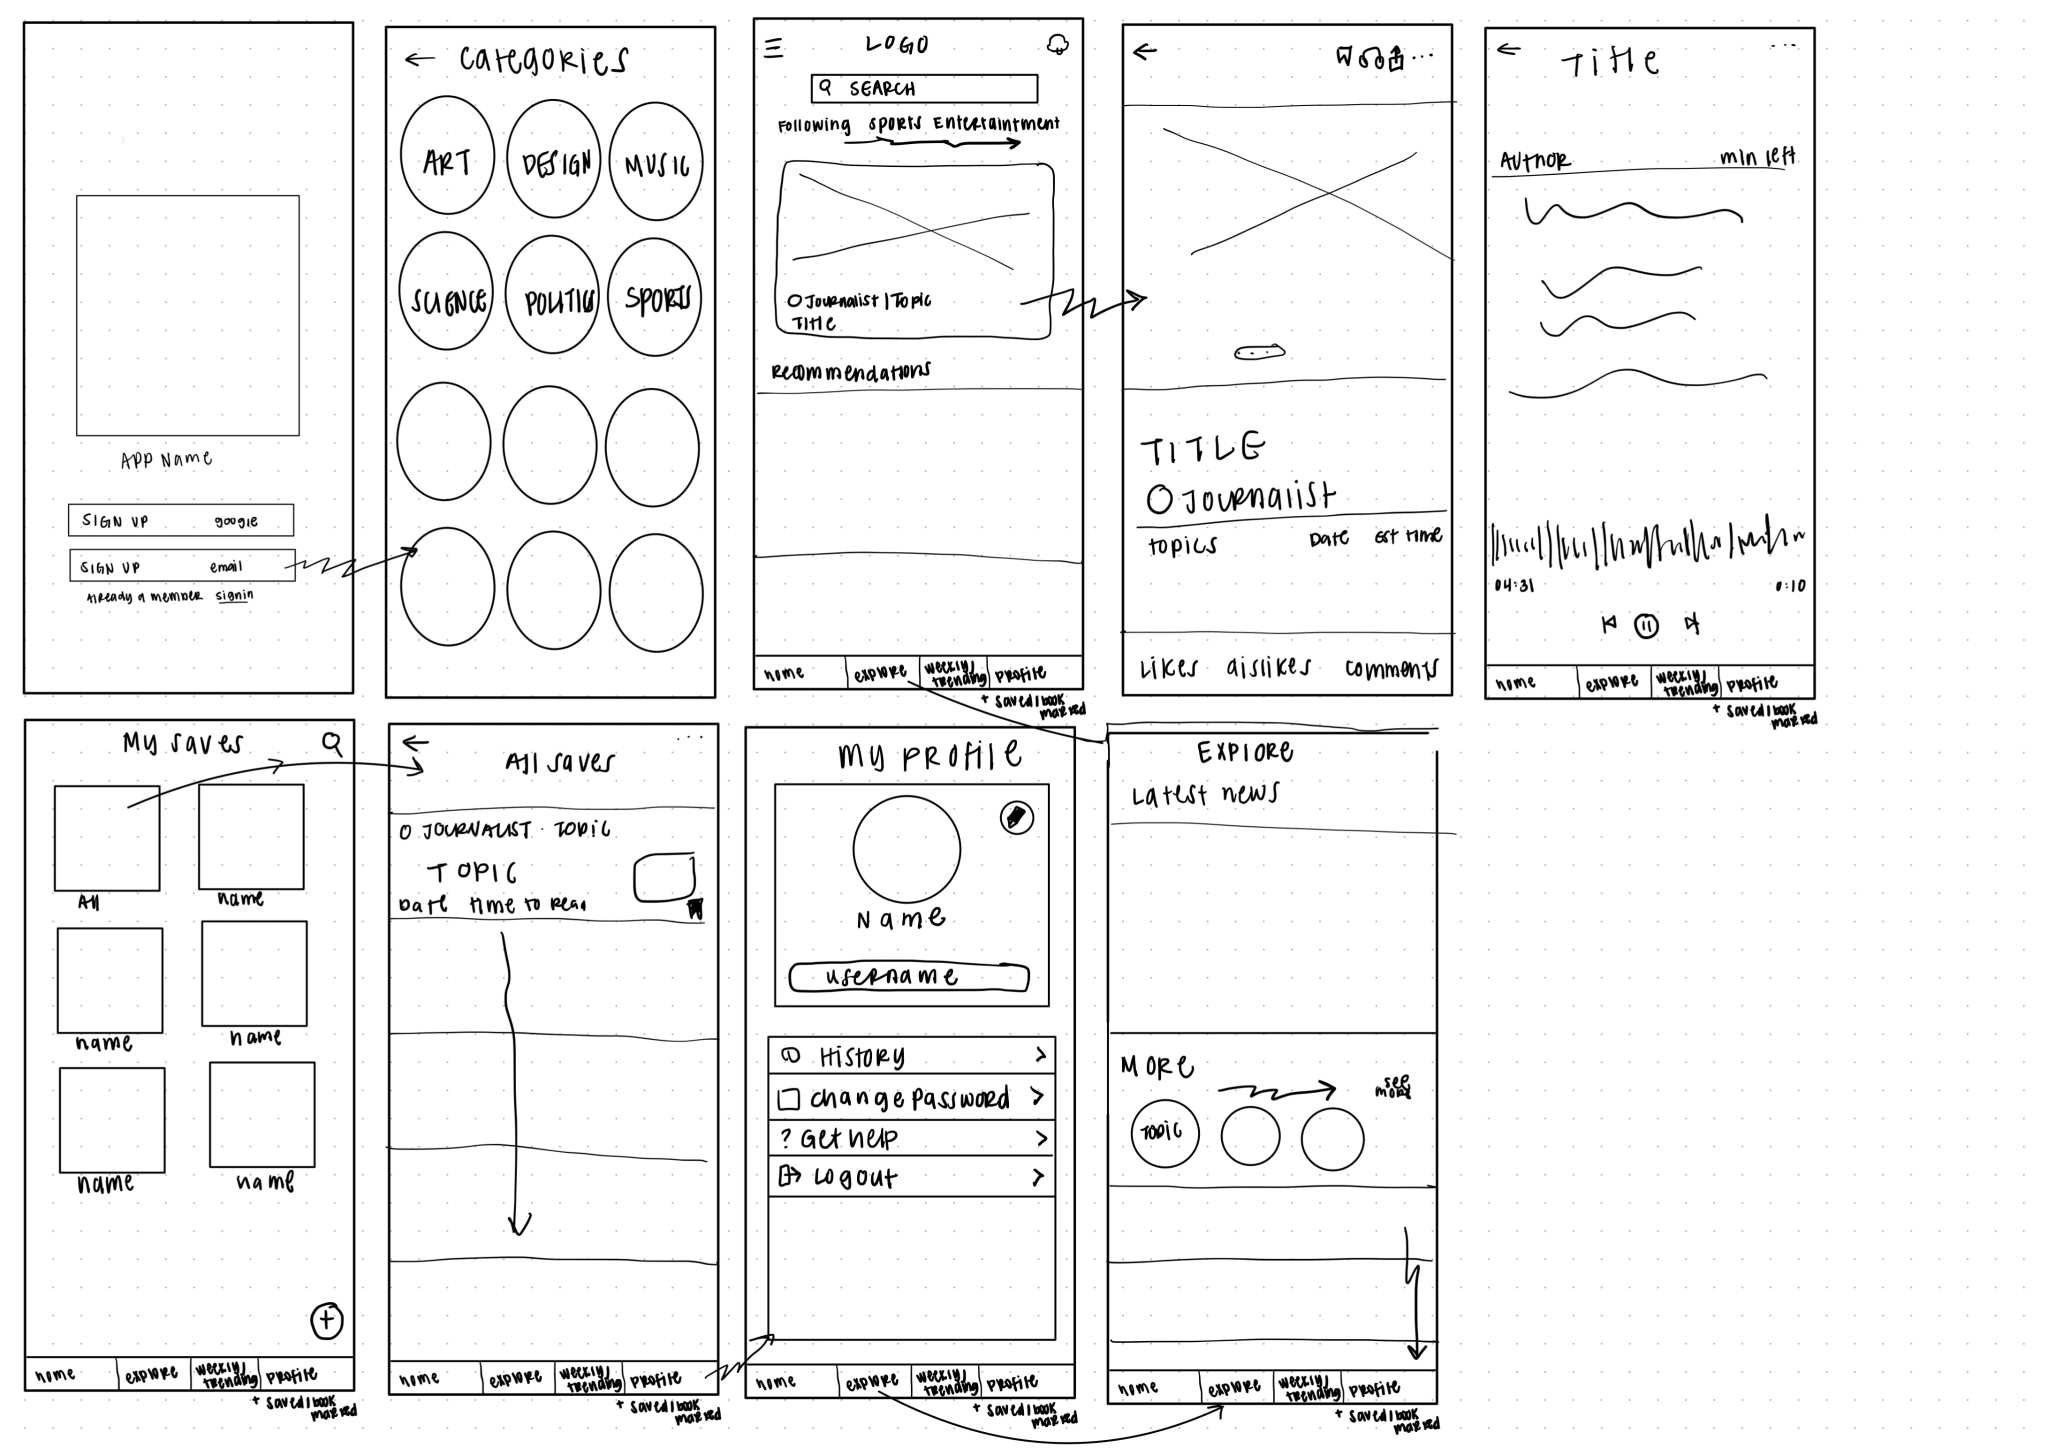 APP Name
SIGN UP google
SIGN UP email
Already a member signin
← Categories
ART DESIGN MUSIC
SCIENCE POLITICS SPORTS
LOGO
SEARCH
Following Sports Entertaintment
Journalist | Topic
Title
Recommendations
home explore weekly/ trending profile
+ saved/book
marked
...
TITLE
Journalist
topics Date est time
Likes dislikes comments
...
Title
Author min left
04:31 0:10
home explore weekly/ trending profile
+ saved/book
marked
My saves
All name
name name
name name
+
home explore weekly/ trending profile
+ saved/book
marked
...
All saves
JOURNALIST · TOPIC
TOPIC
Date time to read
home explore weekly/ trending profile
+ saved/book
marked
My profile
Name
username
History >
change password >
? Get help >
Logout >
home explore weekly/ trending profile
+ saved/book
marked
EXPLORE
Latest news
MORE
see
more
TOPIC
home explore weekly/ trending profile
+ saved/book
marked